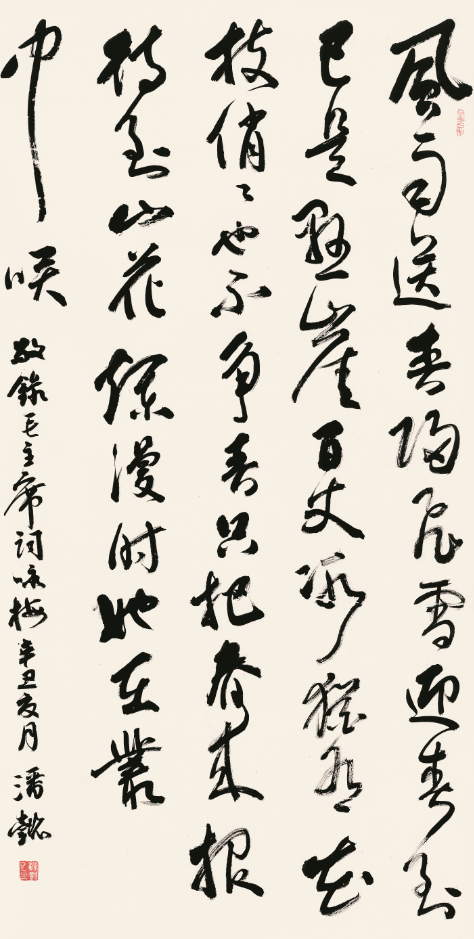 風雨送春歸飛雪迎春到
已是懸崖百丈冰猶有花
枝俏〻也不争春只把春来报
待到山花爛漫时她在叢
中咲
敬錄毛主席詞咏梅辛丑夏月潘懿